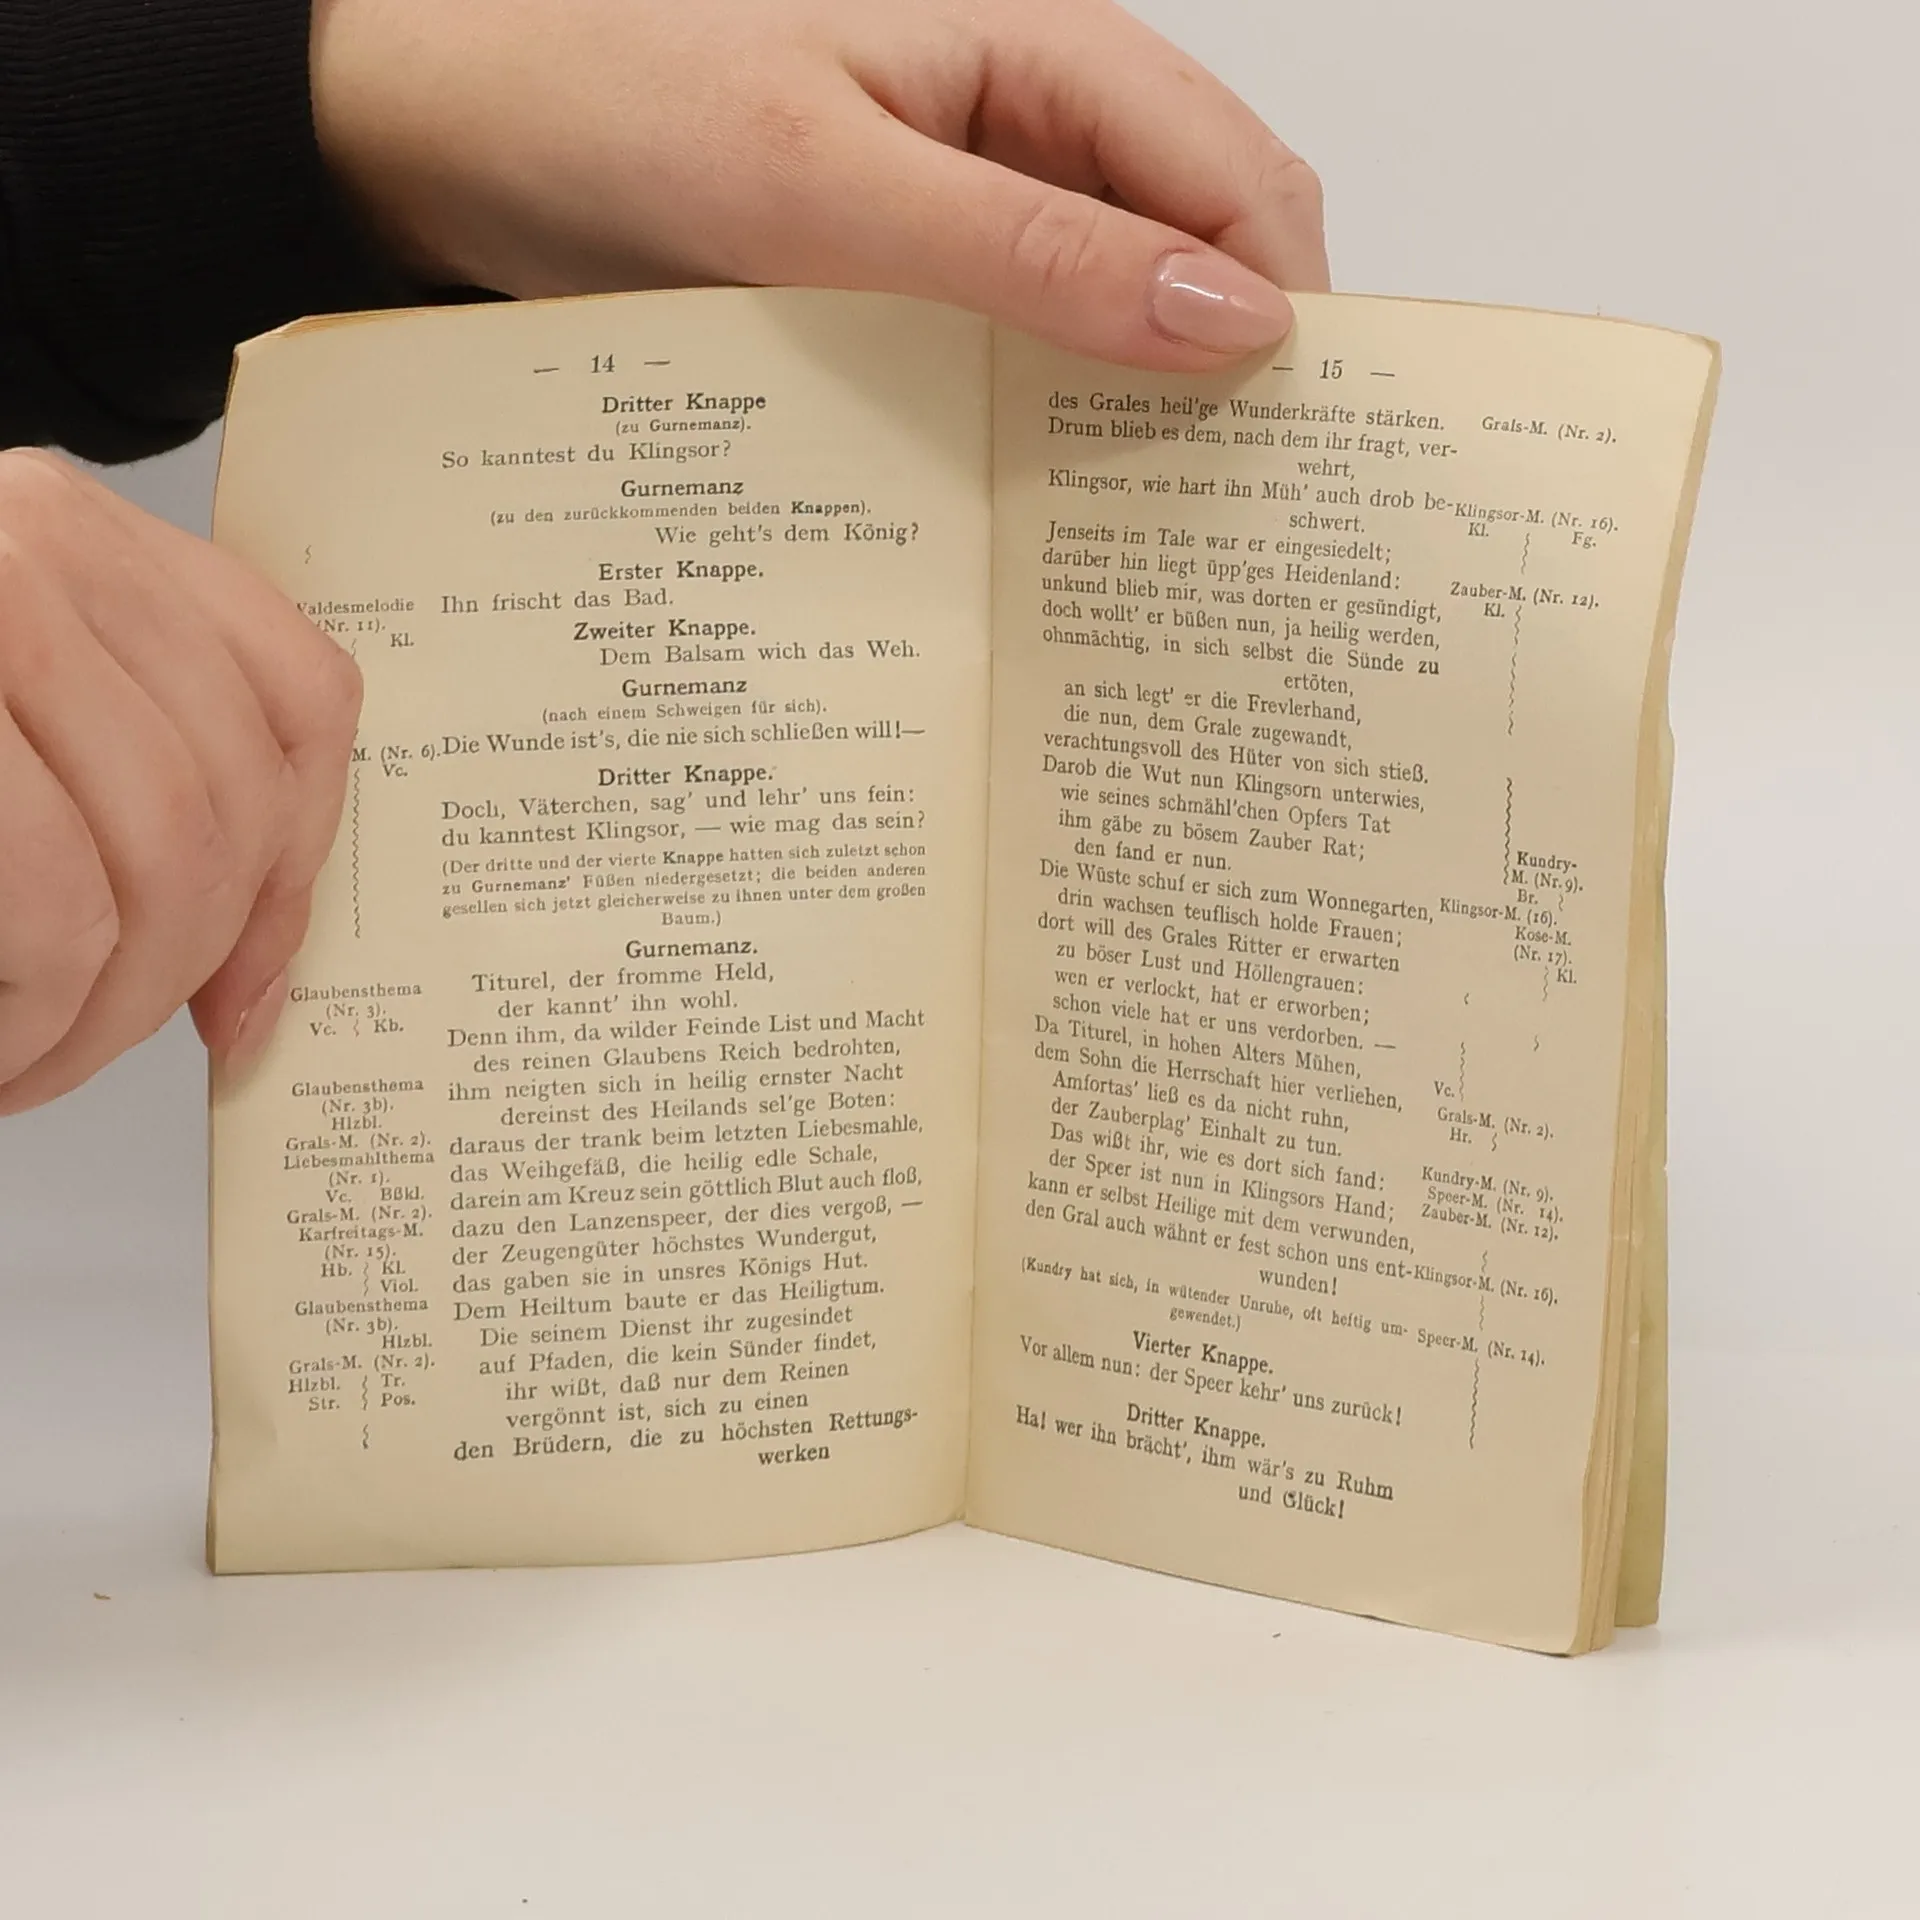 — 14 —
Dritter Knappe
(zu Gurnemanz).
So kanntest du Klingsor?
Gurnemanz
(zu den zurückkommenden beiden Knappen).
Wie geht's dem König?
Erster Knappe.
Valdesmelodie
(Nr. 11).
Kl.
Ihn frischt das Bad.
Zweiter Knappe.
Dem Balsam wich das Weh.
Gurnemanz
(nach einem Schweigen für sich).
M. (Nr. 6).
Vc.
Die Wunde ist's, die nie sich schließen will!—
Dritter Knappe.
Doch, Väterchen, sag' und lehr' uns fein:
du kanntest Klingsor, — wie mag das sein?
(Der dritte und der vierte Knappe hatten sich zuletzt schon
zu Gurnemanz' Füßen niedergesetzt; die beiden anderen
gesellen sich jetzt gleicherweise zu ihnen unter dem großen
Baum.)
Gurnemanz.
Titurel, der fromme Held,
der kannt' ihn wohl.
Denn ihm, da wilder Feinde List und Macht
des reinen Glaubens Reich bedrohten,
ihm neigten sich in heilig ernster Nacht
dereinst des Heilands sel'ge Boten:
daraus der trank beim letzten Liebesmahle,
das Weihgefäß, die heilig edle Schale,
darein am Kreuz sein göttlich Blut auch floß,
dazu den Lanzenspeer, der dies vergoß, —
der Zeugengüter höchstes Wundergut,
das gaben sie in unsres Königs Hut.
Dem Heiltum baute er das Heiligtum.
Die seinem Dienst ihr zugesindet
auf Pfaden, die kein Sünder findet,
ihr wißt, daß nur dem Reinen
vergönnt ist, sich zu einen
den Brüdern, die zu höchsten Rettungs-
werken
Glaubensthema
(Nr. 3).
Vc. Kb.
Glaubensthema
(Nr. 3b).
Hlzbl.
Grals-M. (Nr. 2).
Liebesmahlthema
(Nr. 1).
Vc. Bßkl.
Grals-M. (Nr. 2).
Karfreitags-M.
(Nr. 15).
Hb. Kl.
Viol.
Glaubensthema
(Nr. 3b).
Hlzbl.
Grals-M. (Nr. 2).
Hlzbl. Tr.
Str. Pos.
— 15 —
des Grales heil'ge Wunderkräfte stärken.
Drum blieb es dem, nach dem ihr fragt, ver-
wehrt,
Klingsor, wie hart ihn Müh' auch drob be-
schwert.
Jenseits im Tale war er eingesiedelt;
darüber hin liegt üpp'ges Heidenland:
unkund blieb mir, was dorten er gesündigt,
doch wollt' er büßen nun, ja heilig werden,
ohnmächtig, in sich selbst die Sünde zu
ertöten,
an sich legt' er die Frevlerhand,
die nun, dem Grale zugewandt,
verachtungsvoll des Hüter von sich stieß.
Darob die Wut nun Klingsorn unterwies,
wie seines schmähl'chen Opfers Tat
ihm gäbe zu bösem Zauber Rat;
den fand er nun.
Die Wüste schuf er sich zum Wonnegarten,
drin wachsen teuflisch holde Frauen;
dort will des Grales Ritter er erwarten
zu böser Lust und Höllengrauen:
wen er verlockt, hat er erworben;
schon viele hat er uns verdorben. —
Da Titurel, in hohen Alters Mühen,
dem Sohn die Herrschaft hier verliehen,
Amfortas' ließ es da nicht ruhn,
der Zauberplag' Einhalt zu tun.
Das wißt ihr, wie es dort sich fand:
der Speer ist nun in Klingsors Hand;
kann er selbst Heilige mit dem verwunden,
den Gral auch wähnt er fest schon uns ent-
wunden!
(Kundry hat sich, in wütender Unruhe, oft heftig um-
gewendet.)
Vierter Knappe.
Vor allem nun: der Speer kehr' uns zurück!
Dritter Knappe.
Ha! wer ihn brächt', ihm wär's zu Ruhm
und Glück!
Grals-M. (Nr. 2).
Klingsor-M. (Nr. 16).
Kl. Fg.
Zauber-M. (Nr. 12).
Kl.
Kundry-
M. (Nr. 9).
Br.
Klingsor-M. (16).
Kose-M.
(Nr. 17).
Kl.
Vc.
Grals-M. (Nr. 2).
Hr.
Kundry-M. (Nr. 9).
Speer-M. (Nr. 14).
Zauber-M. (Nr. 12).
Klingsor-M. (Nr. 16).
Speer-M. (Nr. 14).